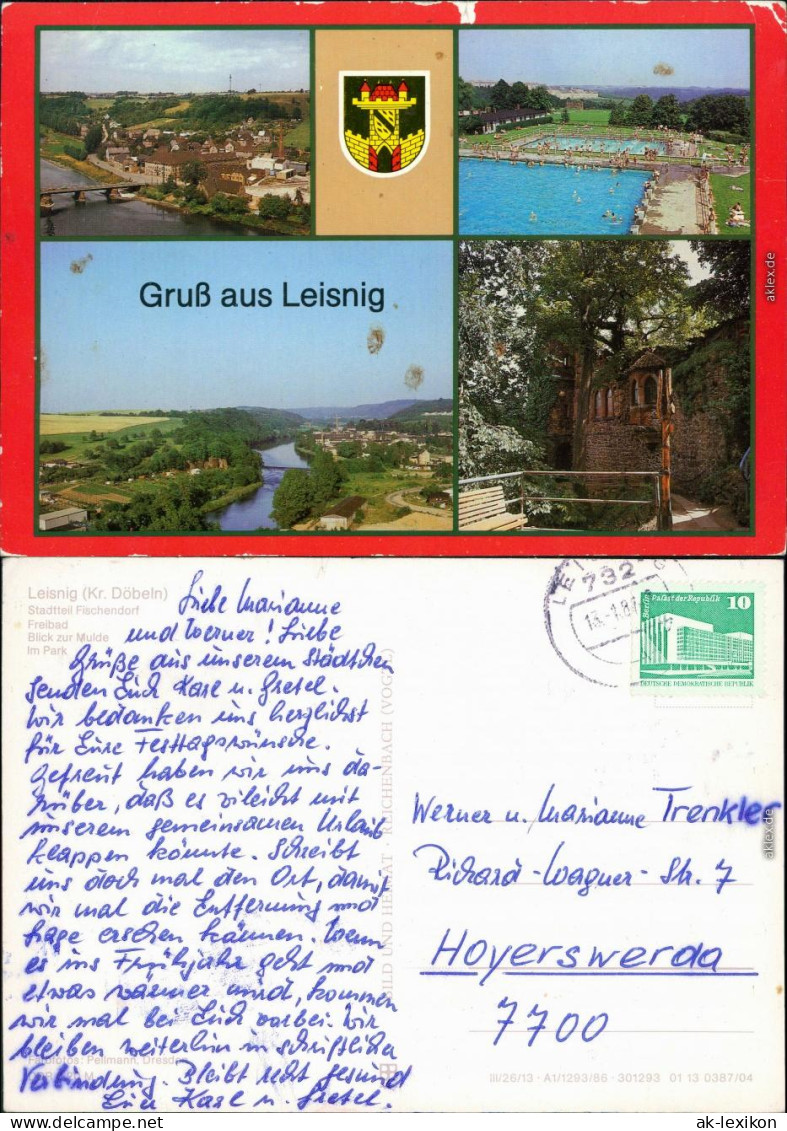 aklex.de
Gruß aus Leisnig
aklex.de
Leisnig (Kr. Döbeln)
Stadtteil Fischendorf
Freibad
Blick zur Mulde
Im Park
Liebe Marianne
und Werner! Liebe
Grüße aus unserem Städtchen
senden Euch Karl u. Gretel.
Wir bedanken uns herzlichst
für Eure Festtagswünsche.
Gefreut haben wir uns da-
rüber, daß es vileicht mit
unserem gemeinsamen Urlaub
klappen könnte. Schreibt
uns doch mal den Ort, damit
wir mal die Entfernung und
Lage ersehen können. Wenn
es ins Frühjahr geht und
etwas warmer wird, kommen
wir mal bei Euch vorbei. Wir
bleiben weiterhin in schriftlicher
Verbindung. Bleibt recht gesund
Eure Karl u. Gretel.
Farbfotos: Pellmann, Dresden
BILD UND HEIMAT · REICHENBACH (VOGTL)
732
Berlin
Palast der Republik
10
DEUTSCHE DEMOKRATISCHE REPUBLIK
Werner u. Marianne Trenkler
Richard-Wagner-Str. 7
Hoyerswerda
7700
III/26/13 · A1/1293/86 · 301293 01 13 0387/04
aklex.de
ak-lexikon.de